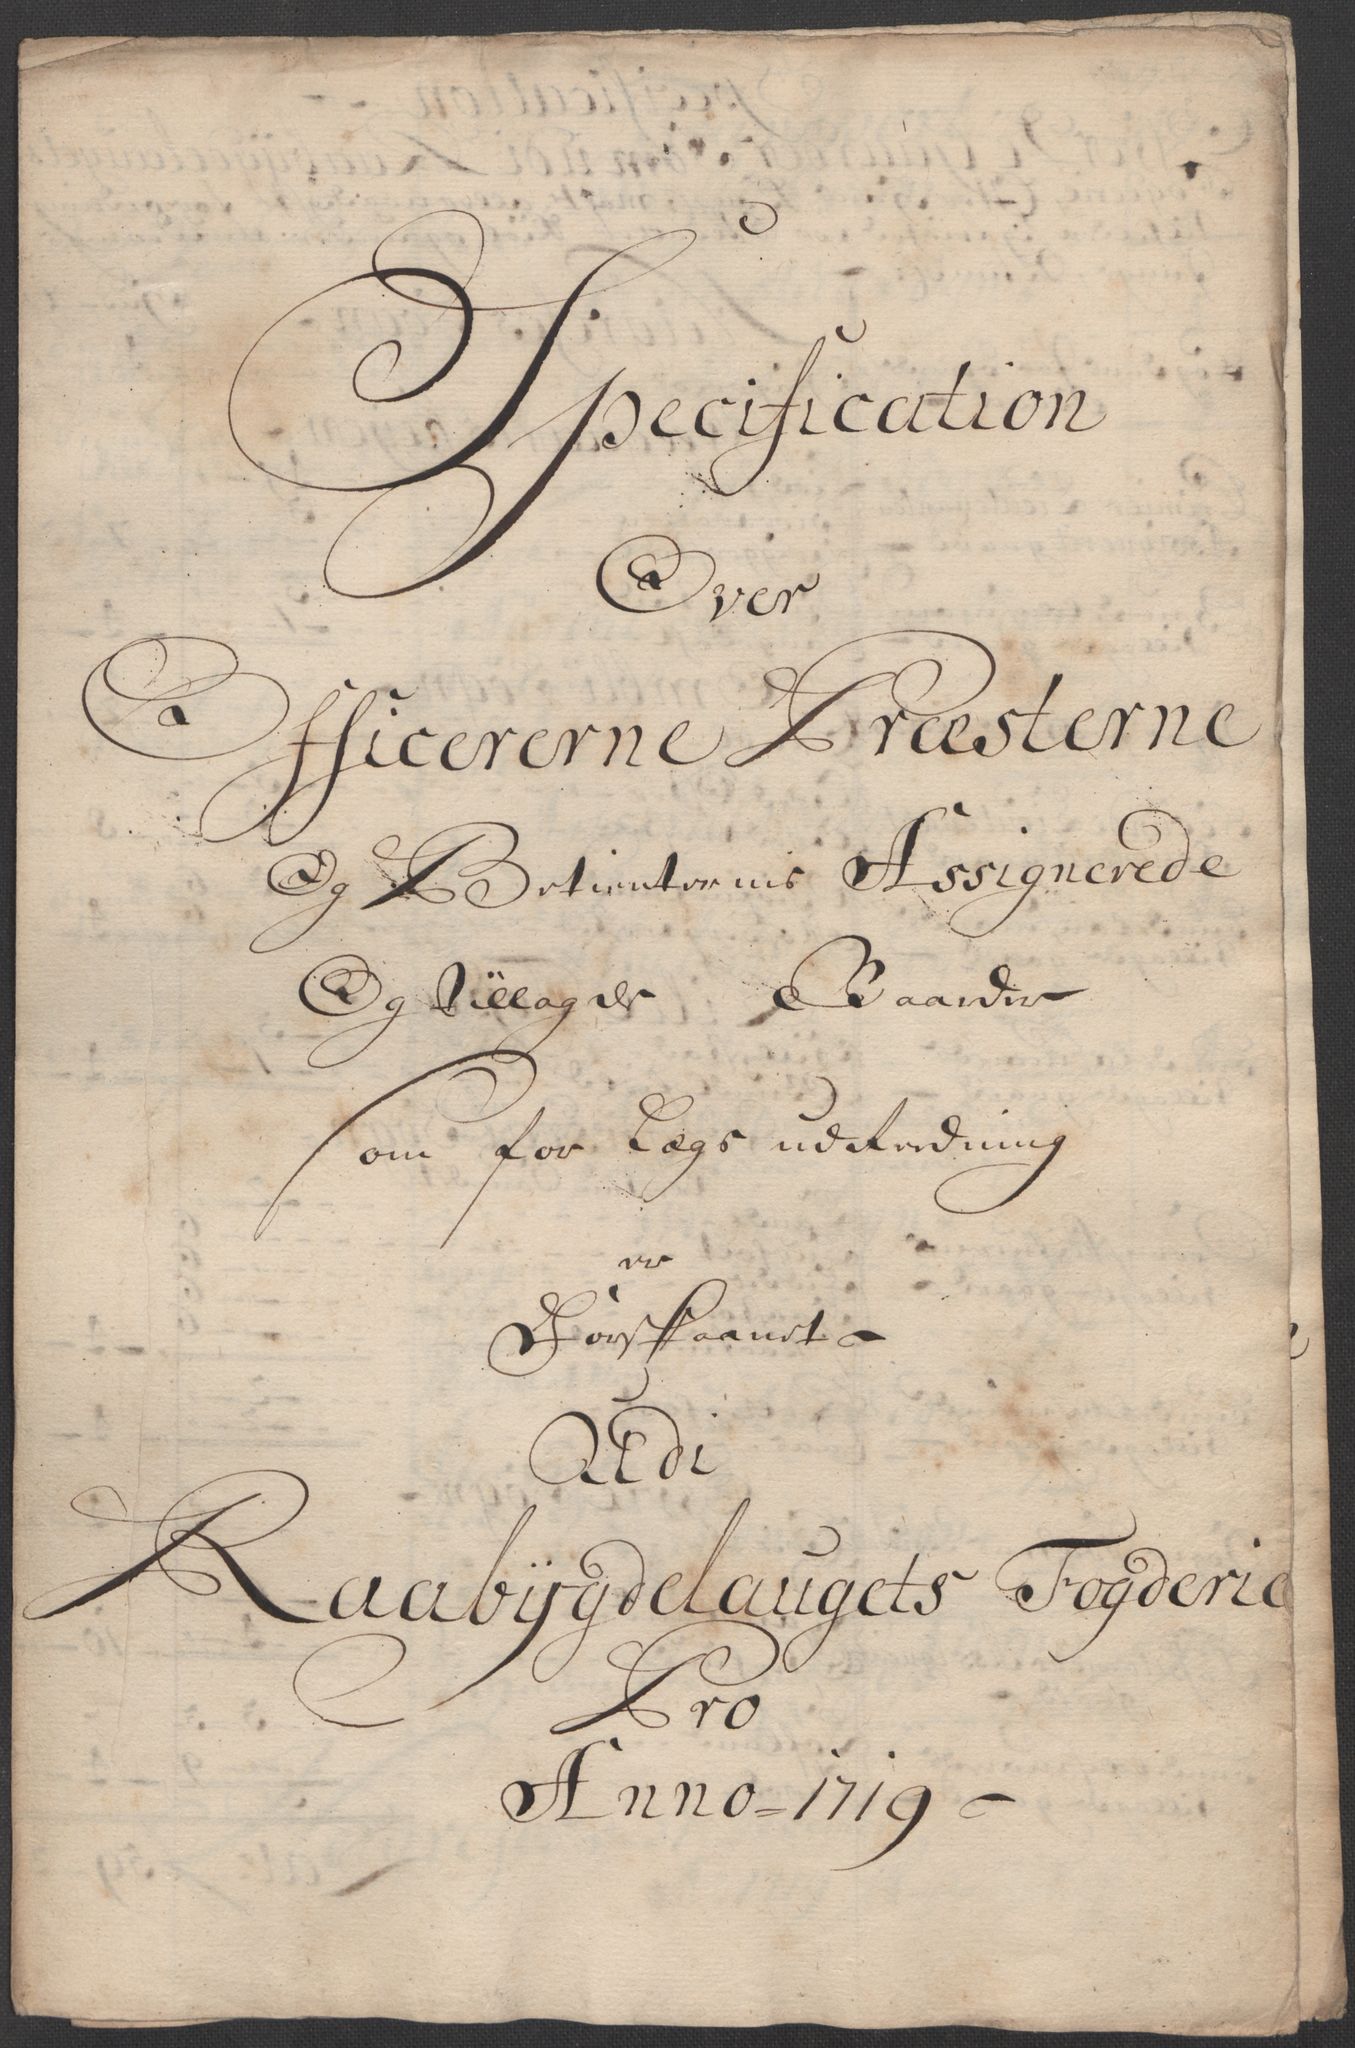 Specification
Over
Officererne Præsterne
Og Betienternis Assignerede
Og tillagde Gaarder
som for Lægs udreedning
er
Forskaanet
Udi
Raabÿgdelaugets Fogderie
Pro
Anno 1719